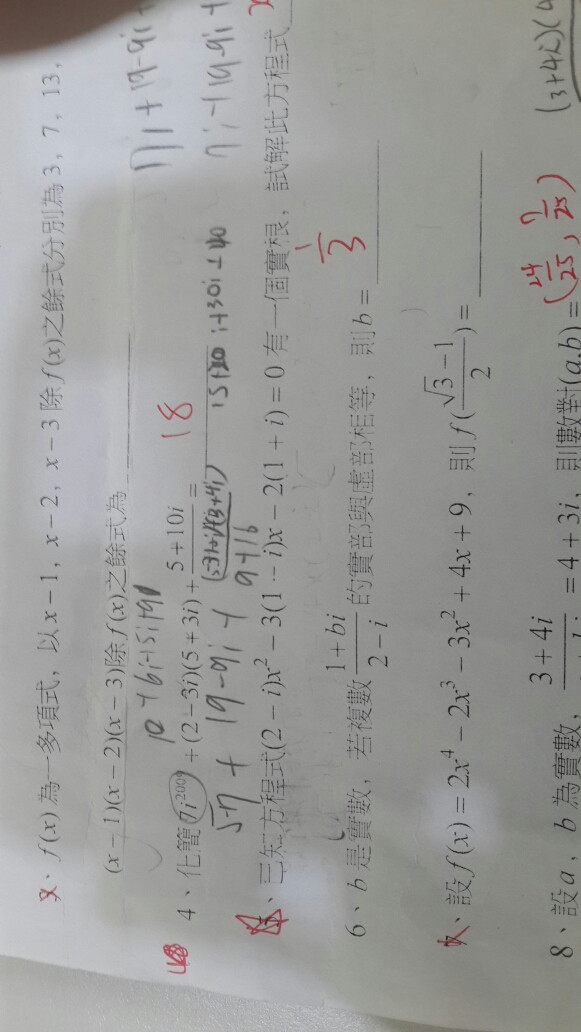 、f(x)為一多項式，以x-1，x-2，x-3除f(x)之餘式分別為3，7，13，
(x-1)(x-2)(x-3)除f(x)之餘式為
17i+19-9i+
10+6i-15i+9
4、化簡7i^2009+(2-3i)(5+3i)+\frac{5+10i}{}= 18
19-9i+
9+16
7i+19-9i+
、已知方程式(2-i)x²-3(1-i)x-2(1+i)=0有一個實根，試解此方程式
6、b是實數，若複數\frac{1+bi}{2-i}的實部與虛部相等，則b= \frac{1}{3}
、設f(x)=2x⁴-2x³-3x²+4x+9，則f(\frac{√3-1}{2})=
(3+4i)(4
8、設a、b為實數，\frac{3+4i}{}=4+3i、則數對(a,b)= (\frac{24}{25}, \frac{7}{25})